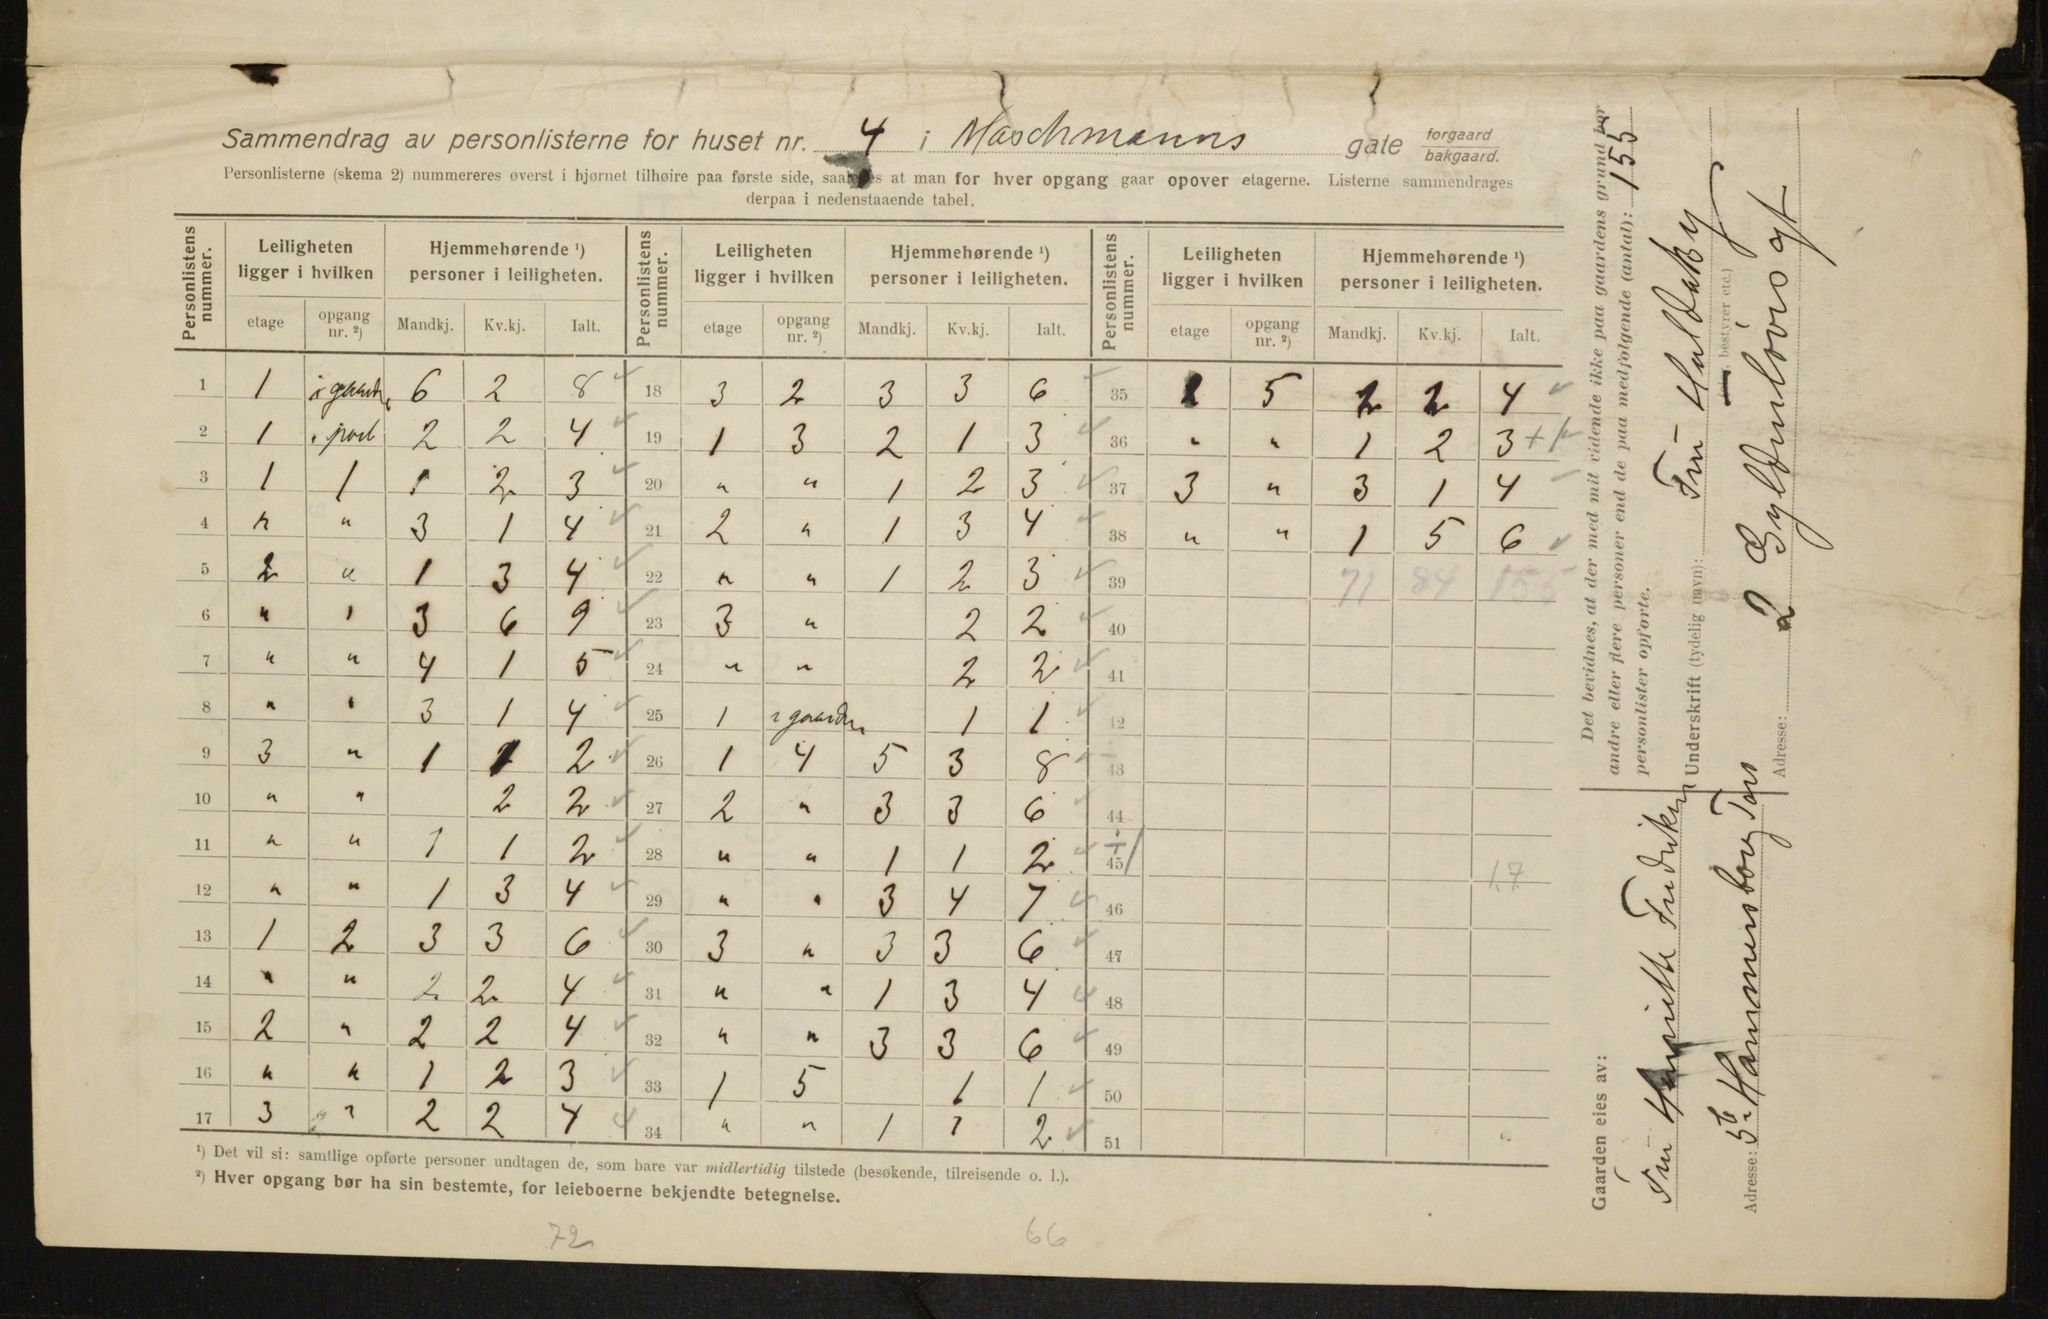 Sammendrag av personlisterne for huset nr. 4 i Maschmanns gate forgaard bakgaard.
Personlisterne (skema 2) nummereres øverst i hjørnet tilhøire paa første side, saaledes at man for hver opgang gaar opover etagerne. Listerne sammendrages
derpaa i nedenstaaende tabel.
Personlistens nummer. Leiligheten ligger i hvilken Hjemmehørende ¹) personer i leiligheten. Personlistens nummer. Leiligheten ligger i hvilken Hjemmehørende ¹) personer i leiligheten. Personlistens nummer. Leiligheten ligger i hvilken Hjemmehørende ¹) personer i leiligheten.
etage opgang nr. ²) Mandkj. Kv.kj. Ialt. etage opgang nr. ²) Mandkj. Kv.kj. Ialt. etage opgang nr. ²) Mandkj. Kv.kj. Ialt.
1 1 i gaarden 6 2 8 18 3 2 3 3 6 35 2 5 2 2 4
2 1 i port 2 2 4 19 1 3 2 1 3 36 " " 1 2 3
3 1 1 1 2 3 20 " " 1 2 3 37 3 " 3 1 4
4 " " 3 1 4 21 2 " 1 3 4 38 " " 1 5 6
5 2 " 1 3 4 22 " " 1 2 3 39 71 84 155
6 " " 3 6 9 23 3 " 2 2 40
7 " " 4 1 5 24 " " 2 2 41
8 " " 3 1 4 25 1 i gaarden 1 1 42
9 3 " 1 1 2 26 1 4 5 3 8 43
10 " " 2 2 27 2 " 3 3 6 44
11 " " 1 1 2 28 " " 1 1 2 45 17
12 " " 1 3 4 29 " " 3 4 7 46
13 1 2 3 3 6 30 3 " 3 3 6 47
14 " " 2 2 4 31 " " 1 3 4 48
15 2 " 2 2 4 32 " " 3 3 6 49
16 " " 1 2 3 33 1 5 1 1 50
17 3 " 2 2 4 34 " " 1 1 2 51
¹) Det vil si: samtlige opførte personer undtagen de, som bare var midlertidig tilstede (besøkende, tilreisende o. l.).
²) Hver opgang bør ha sin bestemte, for leieboerne bekjendte betegnelse.
72 66
Det bevidnes, at der med mit vidende ikke paa gaardens grund bor
andre eller flere personer end de paa medfølgende (antal): 155
personlister opførte.
Underskrift (tydelig navn): Fru Huldaby
bestyrer etc.)
Adresse: 2 Gyldenløves gt
Gaarden eies av:
Fru Henriette Fredriksen
Adresse: 5b Hammersborg Torv